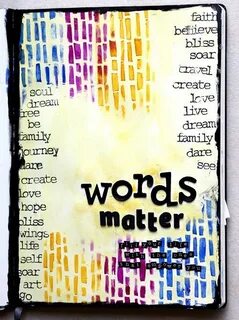 faith
believe
bliss
soar
travel
create
love
live
dream
family
dare
see
soul
dream
free
be
family
journey
dare
create
love
hope
bliss
wings
life
self
soar
art
go
words
matter